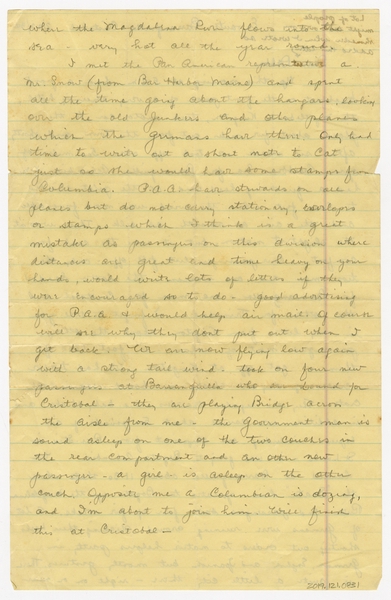 where the Magdalena River flows into the
sea - very hot all the year round.
I met the Pan American representative a
Mr. Snow (from Bar Harbor Maine) and spent
all the time going about the hangars, looking
over the old Junkers and other planes
which the Germans have there. Only had
time to write out a short note to Cat
just so she would have some stamps from
Columbia. P.A.A. have stewards on all
planes but do not carry stationery, envelopes
or stamps which I think is a great
mistake as passengers on this division where
distances are great and time heavy on your
hands, would write lots of letters if they
were encouraged so to do - good advertising
for P.A.A. & would help air mail. Of course
will see why they dont put out when I
get back. We are now flying low again
with a strong tail wind - took on four new
passengers at Barranquilla who are bound for
Cristobal - they are playing Bridge across
the aisle from me - the Government man is
sound asleep on one of the two couches in
the rear compartment and an other new
passenger - a girl - is asleep on the other
couch. Opposite me a Columbian is dozing,
and I'm about to join him. Will finish
this at Cristobal -
2019.121.0831